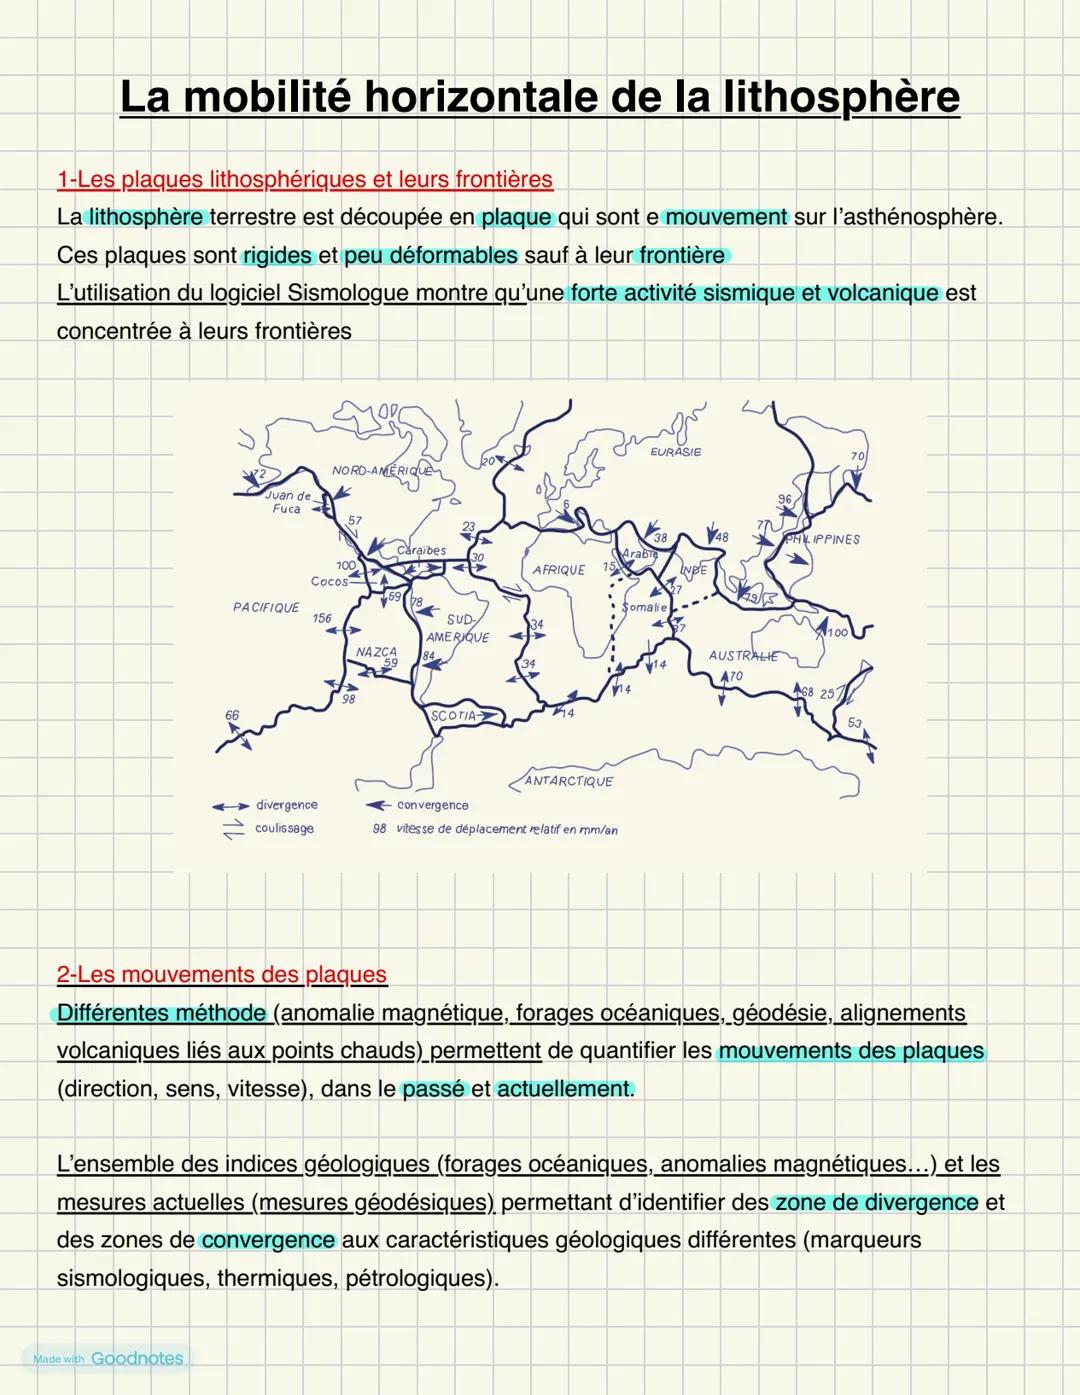 La mobilité horizontale de la lithosphère
1-Les plaques lithosphériques et leurs frontières
La lithosphère terrestre est découpée en plaque qui sont e mouvement sur l'asthénosphère.
Ces plaques sont rigides et peu déformables sauf à leur frontière
L'utilisation du logiciel Sismologue montre qu'une forte activité sismique et volcanique est
concentrée à leurs frontières
20
EURASIE
70
72
NORD-AMÉRIQUE
Juan de
Fuca
57
6
96
23
38
48
77
PHILIPPINES
Caraïbes
30
Arabie
100
AFRIQUE
15
INDE
Cocos
69
78
27
79
PACIFIQUE
156
SUD-
AMÉRIQUE
34
Somalie
37
100
NAZCA
59
84
34
14
AUSTRALIE
70
98
14
68
25
66
SCOTIA
14
53
ANTARCTIQUE
divergence
convergence
coulissage
98 vitesse de déplacement relatif en mm/an
2-Les mouvements des plaques
Différentes méthode (anomalie magnétique, forages océaniques, géodésie, alignements
volcaniques liés aux points chauds) permettent de quantifier les mouvements des plaques
(direction, sens, vitesse), dans le passé et actuellement.
L'ensemble des indices géologiques (forages océaniques, anomalies magnétiques...) et les
mesures actuelles (mesures géodésiques) permettant d'identifier des zone de divergence et
des zones de convergence aux caractéristiques géologiques différentes (marqueurs
sismologiques, thermiques, pétrologiques).
Made with Goodnotes